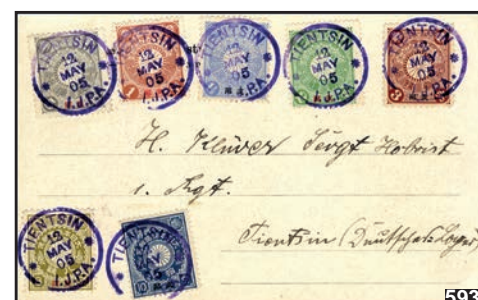 TIENTSIN 12 MAY 05 I.J.P.A.
TIENTSIN 12 MAY 05 I.J.P.A.
TIENTSIN 12 MAY 05
TIENTSIN 12 MAY 05 I.J.P.A.
TIENTSIN 12 MAY 05 I.J.P.A.
H. Klüver Sergt Hoboist
1. Rgt.
Tientsin (Deutsches Lager)
TIENTSIN 12 MAY 05 I.J.P.A.
TIENTSIN I.J.P.A.
593